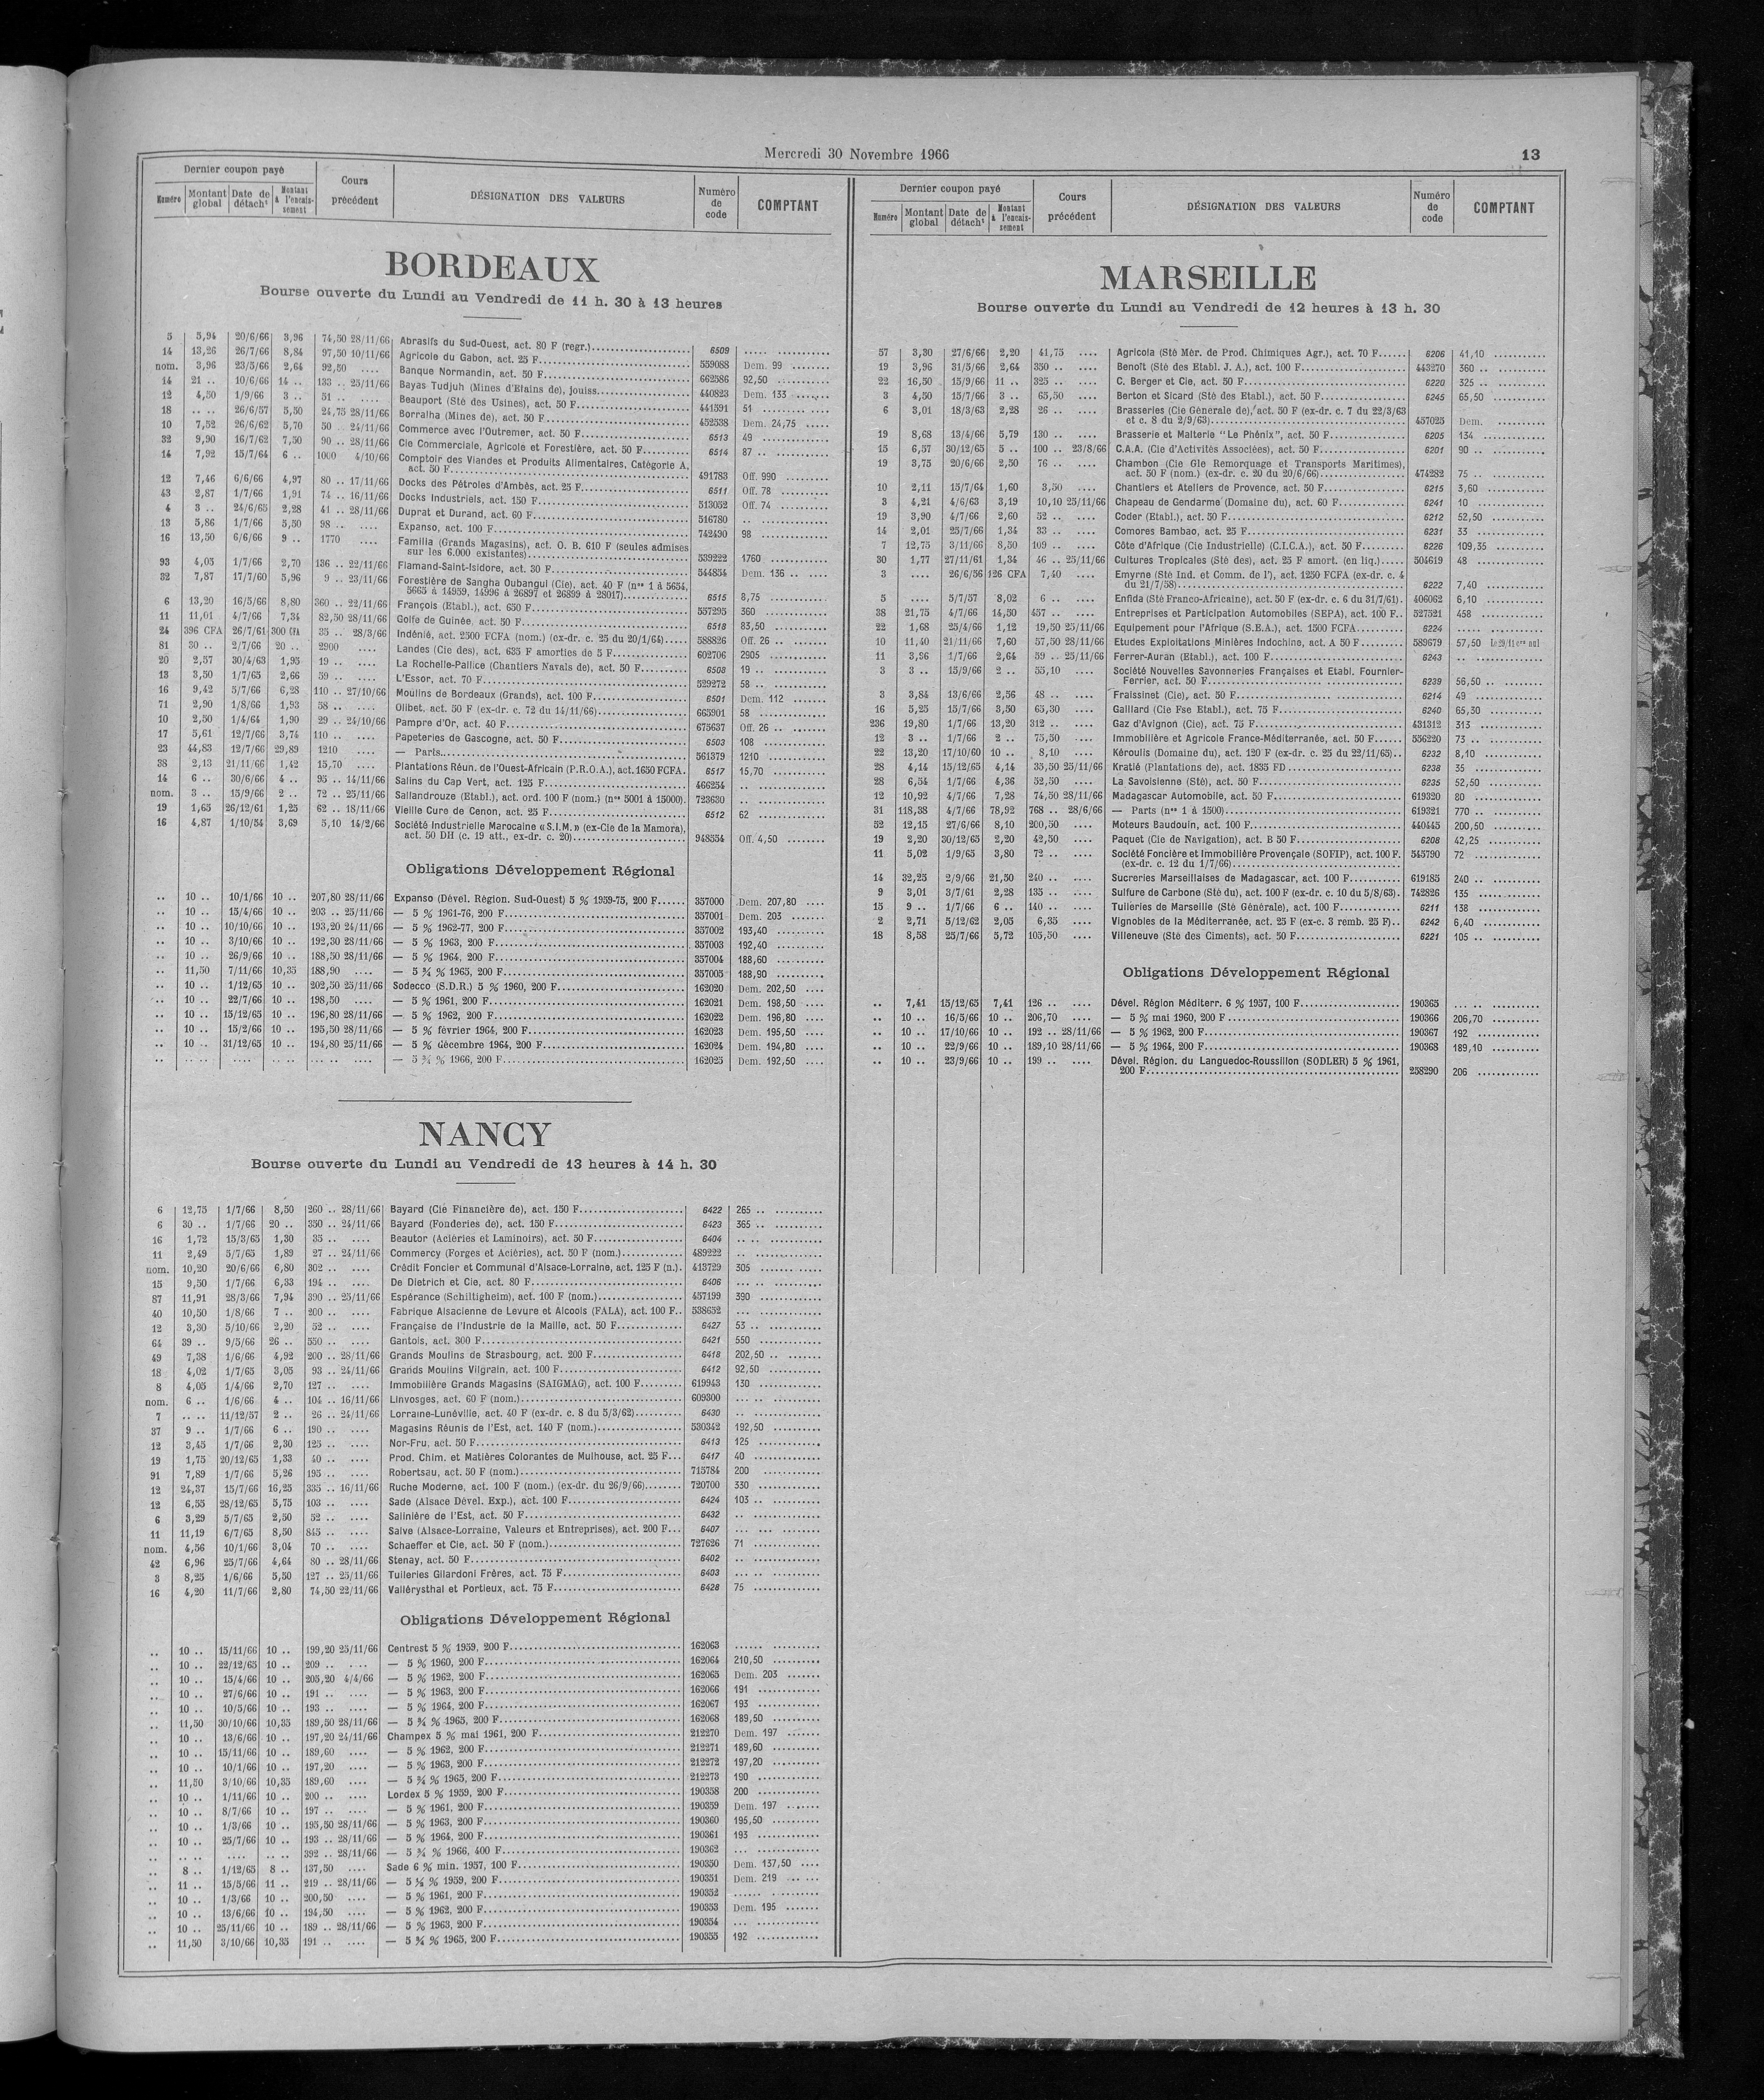 Mercredi 30 Novembre 1966
13
Dernier coupon payé
Numéro | Montant global | Date de détach<sup>t</sup> | Montant à l'encaissement | Cours précédent | DÉSIGNATION DES VALEURS | Numéro de code | COMPTANT
BORDEAUX
Bourse ouverte du Lundi au Vendredi de 11 h. 30 à 13 heures
5 5,94 20/6/66 3,96 74,50 28/11/66 Abrasifs du Sud-Ouest, act. 80 F (regr.) 6509 .....
14 13,26 26/7/66 8,84 97,50 10/11/66 Agricole du Gabon, act. 25 F 559088 Dem. 99
nom. 3,96 23/5/66 2,64 92,50 .... Banque Normandin, act. 50 F 662586 92,50
14 21 .. 10/6/66 14 .. 133 .. 25/11/66 Bayas Tudjuh (Mines d'Etains de), jouiss. 440823 Dem. 133
12 4,50 1/9/66 3 .. 51 .. .... Beauport (Sté des Usines), act. 50 F 441591 51
18 .. .. 26/6/57 5,50 24,75 28/11/66 Borralha (Mines de), act. 50 F 452538 Dem. 24,75
10 7,52 26/6/62 5,70 50 .. 24/11/66 Commerce avec l'Outremer, act. 50 F 6513 49
32 9,90 16/7/62 7,50 90 .. 28/11/66 Cie Commerciale, Agricole et Forestière, act. 50 F 6514 87 ..
14 7,92 15/7/64 6 .. 1000 4/10/66 Comptoir des Viandes et Produits Alimentaires, Catégorie A,
act. 50 F 491783 Off. 990
12 7,46 6/6/66 4,97 80 .. 17/11/66 Docks des Pétroles d'Ambès, act. 25 F 6511 Off. 78
43 2,87 1/7/66 1,91 74 .. 16/11/66 Docks Industriels, act. 150 F 513052 Off. 74
4 3 .. 24/6/65 2,28 41 .. 28/11/66 Duprat et Durand, act. 60 F 516780 ..
13 5,86 1/7/66 5,50 98 .. .... Expanso, act. 100 F 742490 98
16 13,50 6/6/66 9 .. 1770 .... Familia (Grands Magasins), act. O. B. 610 F (seules admises
sur les 6.000 existantes) 539222 1760
93 4,05 1/7/66 2,70 136 .. 22/11/66 Flamand-Saint-Isidore, act. 30 F 544854 Dem. 136 ..
32 7,87 17/7/60 5,96 9 .. 23/11/66 Forestière de Sangha Oubangui (Cie), act. 40 F (nos 1 à 5654,
5665 à 14959, 14996 à 26897 et 26899 à 28017) 6515 8,75
6 13,20 16/5/66 8,80 360 .. 22/11/66 François (Etabl.), act. 650 F 557295 360
11 11,01 4/7/66 7,34 82,50 28/11/66 Golfe de Guinée, act. 50 F 6518 83,50
24 396 CFA 26/7/61 300 CFA 35 .. 28/3/66 Indénié, act. 2500 FCFA (nom.) (ex-dr. c. 25 du 20/1/64) 588826 Off. 26 ..
81 30 .. 2/7/66 20 .. 2900 .... Landes (Cie des), act. 635 F amorties de 5 F 602706 2905
20 2,57 30/4/63 1,95 19 .. .... La Rochelle-Pallice (Chantiers Navals de), act. 50 F 6508 19 ..
13 3,50 1/7/65 2,66 59 .. .... L'Essor, act. 70 F 529272 58 ..
16 9,42 5/7/66 6,28 110 .. 27/10/66 Moulins de Bordeaux (Grands), act. 100 F 6501 Dem. 112
71 2,90 1/8/66 1,93 58 .. .... Olibet, act. 50 F (ex-dr. c. 72 du 14/11/66) 665901 58
10 2,50 1/4/64 1,90 29 .. 24/10/66 Pampre d'Or, act. 40 F 675637 Off. 26 ..
17 5,61 12/7/66 3,74 110 .. .... Papeteries de Gascogne, act. 50 F 6503 108
23 44,83 12/7/66 29,89 1210 .... — Parts 561379 1210
38 2,13 21/11/66 1,42 15,70 .... Plantations Réun. de l'Ouest-Africain (P.R.O.A.), act. 1650 FCFA. 6517 15,70
14 6 .. 30/6/66 4 .. 95 .. 14/11/66 Salins du Cap Vert, act. 125 F 466254 ..
nom. 3 .. 15/9/66 2 .. 72 .. 25/11/66 Sallandrouze (Etabl.), act. ord. 100 F (nom.) (nos 5001 à 15000). 723630 ..
19 1,65 26/12/61 1,25 62 .. 18/11/66 Vieille Cure de Cenon, act. 25 F 6512 62
16 4,87 1/10/54 3,69 5,10 14/2/66 Société Industrielle Marocaine « S.I.M.» (ex-Cie de la Mamora),
act. 50 DH (c. 19 att., ex-dr. c. 20) 948554 Off. 4,50
Obligations Développement Régional
.. 10 .. 10/1/66 10 .. 207,80 28/11/66 Expanso (Dével. Région. Sud-Ouest) 5 % 1959-75, 200 F 357000 Dem. 207,80
.. 10 .. 15/4/66 10 .. 203 .. 25/11/66 — 5 % 1961-76, 200 F 357001 Dem. 203
.. 10 .. 10/10/66 10 .. 193,20 24/11/66 — 5 % 1962-77, 200 F 357002 193,40
.. 10 .. 3/10/66 10 .. 192,30 28/11/66 — 5 % 1963, 200 F 357003 192,40
.. 10 .. 26/9/66 10 .. 188,50 28/11/66 — 5 % 1964, 200 F 357004 188,60
.. 11,50 7/11/66 10,35 188,90 .... — 5 ¾ % 1965, 200 F 357005 188,90
.. 10 .. 1/12/65 10 .. 202,50 25/11/66 Sodecco (S.D.R.) 5 % 1960, 200 F 162020 Dem. 202,50
.. 10 .. 22/7/66 10 .. 198,50 .... — 5 % 1961, 200 F 162021 Dem. 198,50
.. 10 .. 15/12/65 10 .. 196,80 28/11/66 — 5 % 1962, 200 F 162022 Dem. 196,80
.. 10 .. 15/2/66 10 .. 195,50 28/11/66 — 5 % février 1964, 200 F 162023 Dem. 195,50
.. 10 .. 31/12/65 10 .. 194,80 25/11/66 — 5 % décembre 1964, 200 F 162024 Dem. 194,80
.. .. .. .... .. .. .. .. .... — 5 ¾ % 1966, 200 F 162025 Dem. 192,50
NANCY
Bourse ouverte du Lundi au Vendredi de 13 heures à 14 h. 30
6 12,75 1/7/66 8,50 260 .. 28/11/66 Bayard (Cie Financière de), act. 150 F 6422 265 ..
6 30 .. 1/7/66 20 .. 350 .. 24/11/66 Bayard (Fonderies de), act. 150 F 6423 365 ..
16 1,72 15/3/65 1,30 35 .. .... Beautor (Aciéries et Laminoirs), act. 50 F 6404 .. ..
11 2,49 5/7/65 1,89 27 .. 24/11/66 Commercy (Forges et Aciéries), act. 50 F (nom.) 489222 ..
nom. 10,20 20/6/66 6,80 302 .. .... Crédit Foncier et Communal d'Alsace-Lorraine, act. 125 F (n.). 413729 305
15 9,50 1/7/66 6,33 194 .. .... De Dietrich et Cie, act. 80 F 6406 ... ..
87 11,91 28/3/66 7,94 390 .. 25/11/66 Espérance (Schiltigheim), act. 100 F (nom.) 457199 390
40 10,50 1/8/66 7 .. 200 .. .... Fabrique Alsacienne de Levure et Alcools (FALA), act. 100 F.. 538652 ...
12 3,30 5/10/66 2,20 52 .. .... Française de l'Industrie de la Maille, act. 50 F 6427 53 ..
64 39 .. 9/5/66 26 .. 550 .. .... Gantois, act. 300 F 6421 550
49 7,38 1/6/66 4,92 200 .. 28/11/66 Grands Moulins de Strasbourg, act. 200 F 6418 202,50 ..
18 4,02 1/7/65 3,05 93 .. 24/11/66 Grands Moulins Vilgrain, act. 100 F 6412 92,50
8 4,05 1/4/66 2,70 127 .. .... Immobilière Grands Magasins (SAIGMAG), act. 100 F 619943 130
nom. 6 .. 1/6/66 4 .. 104 .. 16/11/66 Linvosges, act. 60 F (nom.) 609300 ... ..
7 .. .. 11/12/57 2 .. 26 .. 24/11/66 Lorraine-Lunéville, act. 40 F (ex-dr. c. 8 du 5/3/62) 6430 ..
37 9 .. 1/7/66 6 .. 190 .. .... Magasins Réunis de l'Est, act. 140 F (nom.) 530342 192,50
12 3,45 1/7/66 2,30 125 .. .... Nor-Fru, act. 50 F 6413 125
19 1,75 20/12/65 1,33 40 .. .... Prod. Chim. et Matières Colorantes de Mulhouse, act. 25 F 6417 40
91 7,89 1/7/66 5,26 195 .. .... Robertsau, act. 50 F (nom.) 715784 200
12 24,37 15/7/66 16,25 335 .. 16/11/66 Ruche Moderne, act. 100 F (nom.) (ex-dr. du 26/9/66) 720700 330
12 6,55 28/12/65 5,75 103 .. .... Sade (Alsace Dével. Exp.), act. 100 F 6424 103 ..
6 3,29 5/7/65 2,50 52 .. .... Salinière de l'Est, act. 50 F 6432 ..
11 11,19 6/7/65 8,50 845 .. .... Salve (Alsace-Lorraine, Valeurs et Entreprises), act. 200 F 6407 ... ...
nom. 4,56 10/1/66 3,04 70 .. .... Schaeffer et Cie, act. 50 F (nom.) 727626 71
42 6,96 25/7/66 4,64 80 .. 28/11/66 Stenay, act. 50 F 6402 ..
3 8,25 1/6/66 5,50 127 .. 25/11/66 Tuileries Gilardoni Frères, act. 75 F 6403 ... ..
16 4,20 11/7/66 2,80 74,50 22/11/66 Vallérysthal et Portieux, act. 75 F 6428 75
Obligations Développement Régional
.. 10 .. 15/11/66 10 .. 199,20 25/11/66 Centrest 5 % 1959, 200 F 162063 ......
.. 10 .. 22/12/65 10 .. 209 .. .... — 5 % 1960, 200 F 162064 210,50
.. 10 .. 15/4/66 10 .. 205,20 4/4/66 — 5 % 1962, 200 F 162065 Dem. 203
.. 10 .. 27/6/66 10 .. 191 .. .... — 5 % 1963, 200 F 162066 191
.. 10 .. 10/5/66 10 .. 193 .. .... — 5 % 1964, 200 F 162067 193
.. 11,50 30/10/66 10,35 189,50 28/11/66 — 5 ¾ % 1965, 200 F 162068 189,50
.. 10 .. 13/6/66 10 .. 197,20 24/11/66 Champex 5 % mai 1961, 200 F 212270 Dem. 197
.. 10 .. 15/11/66 10 .. 189,60 .... — 5 % 1962, 200 F 212271 189,60
.. 10 .. 10/1/66 10 .. 197,20 .... — 5 % 1963, 200 F 212272 197,20
.. 11,50 3/10/66 10,35 189,60 .... — 5 ¾ % 1965, 200 F 212273 190
.. 10 .. 1/11/66 10 .. 200 .. .... Lordex 5 % 1959, 200 F 190358 200
.. 10 .. 8/7/66 10 .. 197 .. .... — 5 % 1961, 200 F 190359 Dem. 197
.. 10 .. 1/3/66 10 .. 195,50 28/11/66 — 5 % 1963, 200 F 190360 195,50
.. 10 .. 25/7/66 10 .. 193 .. 28/11/66 — 5 % 1964, 200 F 190361 193
.. .. .. .... .. .. 392 .. 28/11/66 — 5 ¾ % 1966, 400 F 190362 ...
.. 8 .. 1/12/65 8 .. 137,50 .... Sade 6 % min. 1957, 100 F 190350 Dem. 137,50
.. 11 .. 15/5/66 11 .. 219 .. 28/11/66 — 5 ½ % 1959, 200 F 190351 Dem. 219
.. 10 .. 1/3/66 10 .. 200,50 .... — 5 % 1961, 200 F 190352 ......
.. 10 .. 13/6/66 10 .. 194,50 .... — 5 % 1962, 200 F 190353 Dem. 195
.. 10 .. 25/11/66 10 .. 189 .. 28/11/66 — 5 % 1963, 200 F 190354 ...
.. 11,50 3/10/66 10,35 191 .. .... — 5 ¾ % 1965, 200 F 190355 192
Dernier coupon payé
Numéro | Montant global | Date de détach<sup>t</sup> | Montant à l'encaissement | Cours précédent | DÉSIGNATION DES VALEURS | Numéro de code | COMPTANT
MARSEILLE
Bourse ouverte du Lundi au Vendredi de 12 heures à 13 h. 30
57 3,30 27/6/66 2,20 41,75 .... Agricola (Sté Mér. de Prod. Chimiques Agr.), act. 70 F 6206 41,10
19 3,96 31/5/66 2,64 350 .. .... Benoît (Sté des Etabl. J. A.), act. 100 F 443270 360 ..
22 16,50 15/9/66 11 .. 325 .. .... C. Berger et Cie, act. 50 F 6220 325 ..
3 4,50 15/7/66 3 .. 65,50 .... Berton et Sicard (Sté des Etabl.), act. 50 F 6245 65,50
6 3,01 18/3/63 2,28 26 .. .... Brasseries (Cie Générale de), act. 50 F (ex-dr. c. 7 du 22/3/63
et c. 8 du 2/9/63) 457025 Dem.
19 8,68 13/4/66 5,79 130 .. .... Brasserie et Malterie "Le Phénix", act. 50 F 6205 134
15 6,57 30/12/65 5 .. 100 .. 23/8/66 C.A.A. (Cie d'Activités Associées), act. 50 F 6201 90 ..
19 3,75 20/6/66 2,50 76 .. .... Chambon (Cie Gle Remorquage et Transports Maritimes),
act. 50 F (nom.) (ex-dr. c. 20 du 20/6/66) 474282 75 ..
10 2,11 15/7/64 1,60 3,50 .... Chantiers et Ateliers de Provence, act. 50 F 6215 3,60
3 4,21 4/6/63 3,19 10,10 25/11/66 Chapeau de Gendarme (Domaine du), act. 60 F 6241 10
19 3,90 4/7/66 2,60 52 .. .... Coder (Etabl.), act. 50 F 6212 52,50
14 2,01 25/7/66 1,34 33 .. .... Comores Bambao, act. 25 F 6231 33
7 12,75 3/11/66 8,50 109 .. .... Côte d'Afrique (Cie Industrielle) (C.I.C.A.), act. 50 F 6226 109,35
30 1,77 27/11/61 1,34 46 .. 25/11/66 Cultures Tropicales (Sté des), act. 25 F amort. (en liq.) 504619 48
3 .... 26/6/56 126 CFA 7,40 .... Emyrne (Sté Ind. et Comm. de l'), act. 1250 FCFA (ex-dr. c. 4
du 21/7/58) 6222 7,40
5 .... 5/7/57 8,02 6 .. .... Enfida (Sté Franco-Africaine), act. 50 F (ex-dr. c. 6 du 31/7/61). 406062 6,10
38 21,75 4/7/66 14,50 457 .. .... Entreprises et Participation Automobiles (SEPA), act. 100 F.. 527521 458
22 1,68 25/4/66 1,12 19,50 25/11/66 Equipement pour l'Afrique (S.E.A.), act. 1500 FCFA 6224 .....
10 11,40 21/11/66 7,60 57,50 28/11/66 Etudes Exploitations Minières Indochine, act. A 50 F 589679 57,50 le 29/11 crs nul
11 3,96 1/7/66 2,64 59 .. 25/11/66 Ferrer-Auran (Etabl.), act. 100 F 6243 ..
3 3 .. 15/9/66 2 .. 55,10 .... Société Nouvelles Savonneries Françaises et Etabl. Fournier-
Ferrier, act. 50 F 6239 56,50 ..
3 3,84 13/6/66 2,56 48 .. .... Fraissinet (Cie), act. 50 F 6214 49
16 5,25 15/7/66 3,50 65,30 .... Gaillard (Cie Fse Etabl.), act. 75 F 6240 65,30
236 19,80 1/7/66 13,20 312 .. .... Gaz d'Avignon (Cie), act. 75 F 431312 313
12 3 .. 1/7/66 2 .. 75,50 .... Immobilière et Agricole France-Méditerranée, act. 50 F 556220 73 ..
22 13,20 17/10/60 10 .. 8,10 .... Kéroulis (Domaine du), act. 120 F (ex-dr. c. 25 du 22/11/65).. 6232 8,10
28 4,14 15/12/65 4,14 35,50 25/11/66 Kratié (Plantations de), act. 1835 FD 6238 35
28 6,54 1/7/66 4,36 52,50 .... La Savoisienne (Sté), act. 50 F 6235 52,50
12 10,92 4/7/66 7,28 74,50 28/11/66 Madagascar Automobile, act. 50 F 619320 80
31 118,38 4/7/66 78,92 768 .. 28/6/66 — Parts (nos 1 à 1500) 619321 770 ..
52 12,15 27/6/66 8,10 200,50 .... Moteurs Baudouin, act. 100 F 440445 200,50
19 2,20 30/12/65 2,20 42,50 .... Paquet (Cie de Navigation), act. B 50 F 6208 42,25
11 5,02 1/9/65 3,80 72 .. .... Société Foncière et Immobilière Provençale (SOFIP), act. 100 F.
(ex-dr. c. 12 du 1/7/66) 545790 72
14 32,25 2/9/66 21,50 240 .. .... Sucreries Marseillaises de Madagascar, act. 100 F 619185 240 ..
9 3,01 3/7/61 2,28 135 .. .... Sulfure de Carbone (Sté du), act. 100 F (ex-dr. c. 10 du 5/8/63). 742826 135
15 9 .. 1/7/66 6 .. 140 .. .... Tuileries de Marseille (Sté Générale), act. 100 F 6211 138
2 2,71 5/12/62 2,05 6,35 .... Vignobles de la Méditerranée, act. 25 F (ex-c. 3 remb. 25 F).. 6242 6,40
18 8,58 25/7/66 5,72 105,50 .... Villeneuve (Sté des Ciments), act. 50 F 6221 105 ..
Obligations Développement Régional
.. 7,41 15/12/65 7,41 126 .. .... Dével. Région Méditerr. 6 % 1957, 100 F 190365 ... ..
.. 10 .. 16/5/66 10 .. 206,70 .... — 5 % mai 1960, 200 F 190366 206,70
.. 10 .. 17/10/66 10 .. 192 .. 28/11/66 — 5 % 1962, 200 F 190367 192
.. 10 .. 22/9/66 10 .. 189,10 28/11/66 — 5 % 1964, 200 F 190368 189,10
.. 10 .. 23/9/66 10 .. 199 .. .... Dével. Région. du Languedoc-Roussillon (SODLER) 5 % 1961,
200 F 258290 206